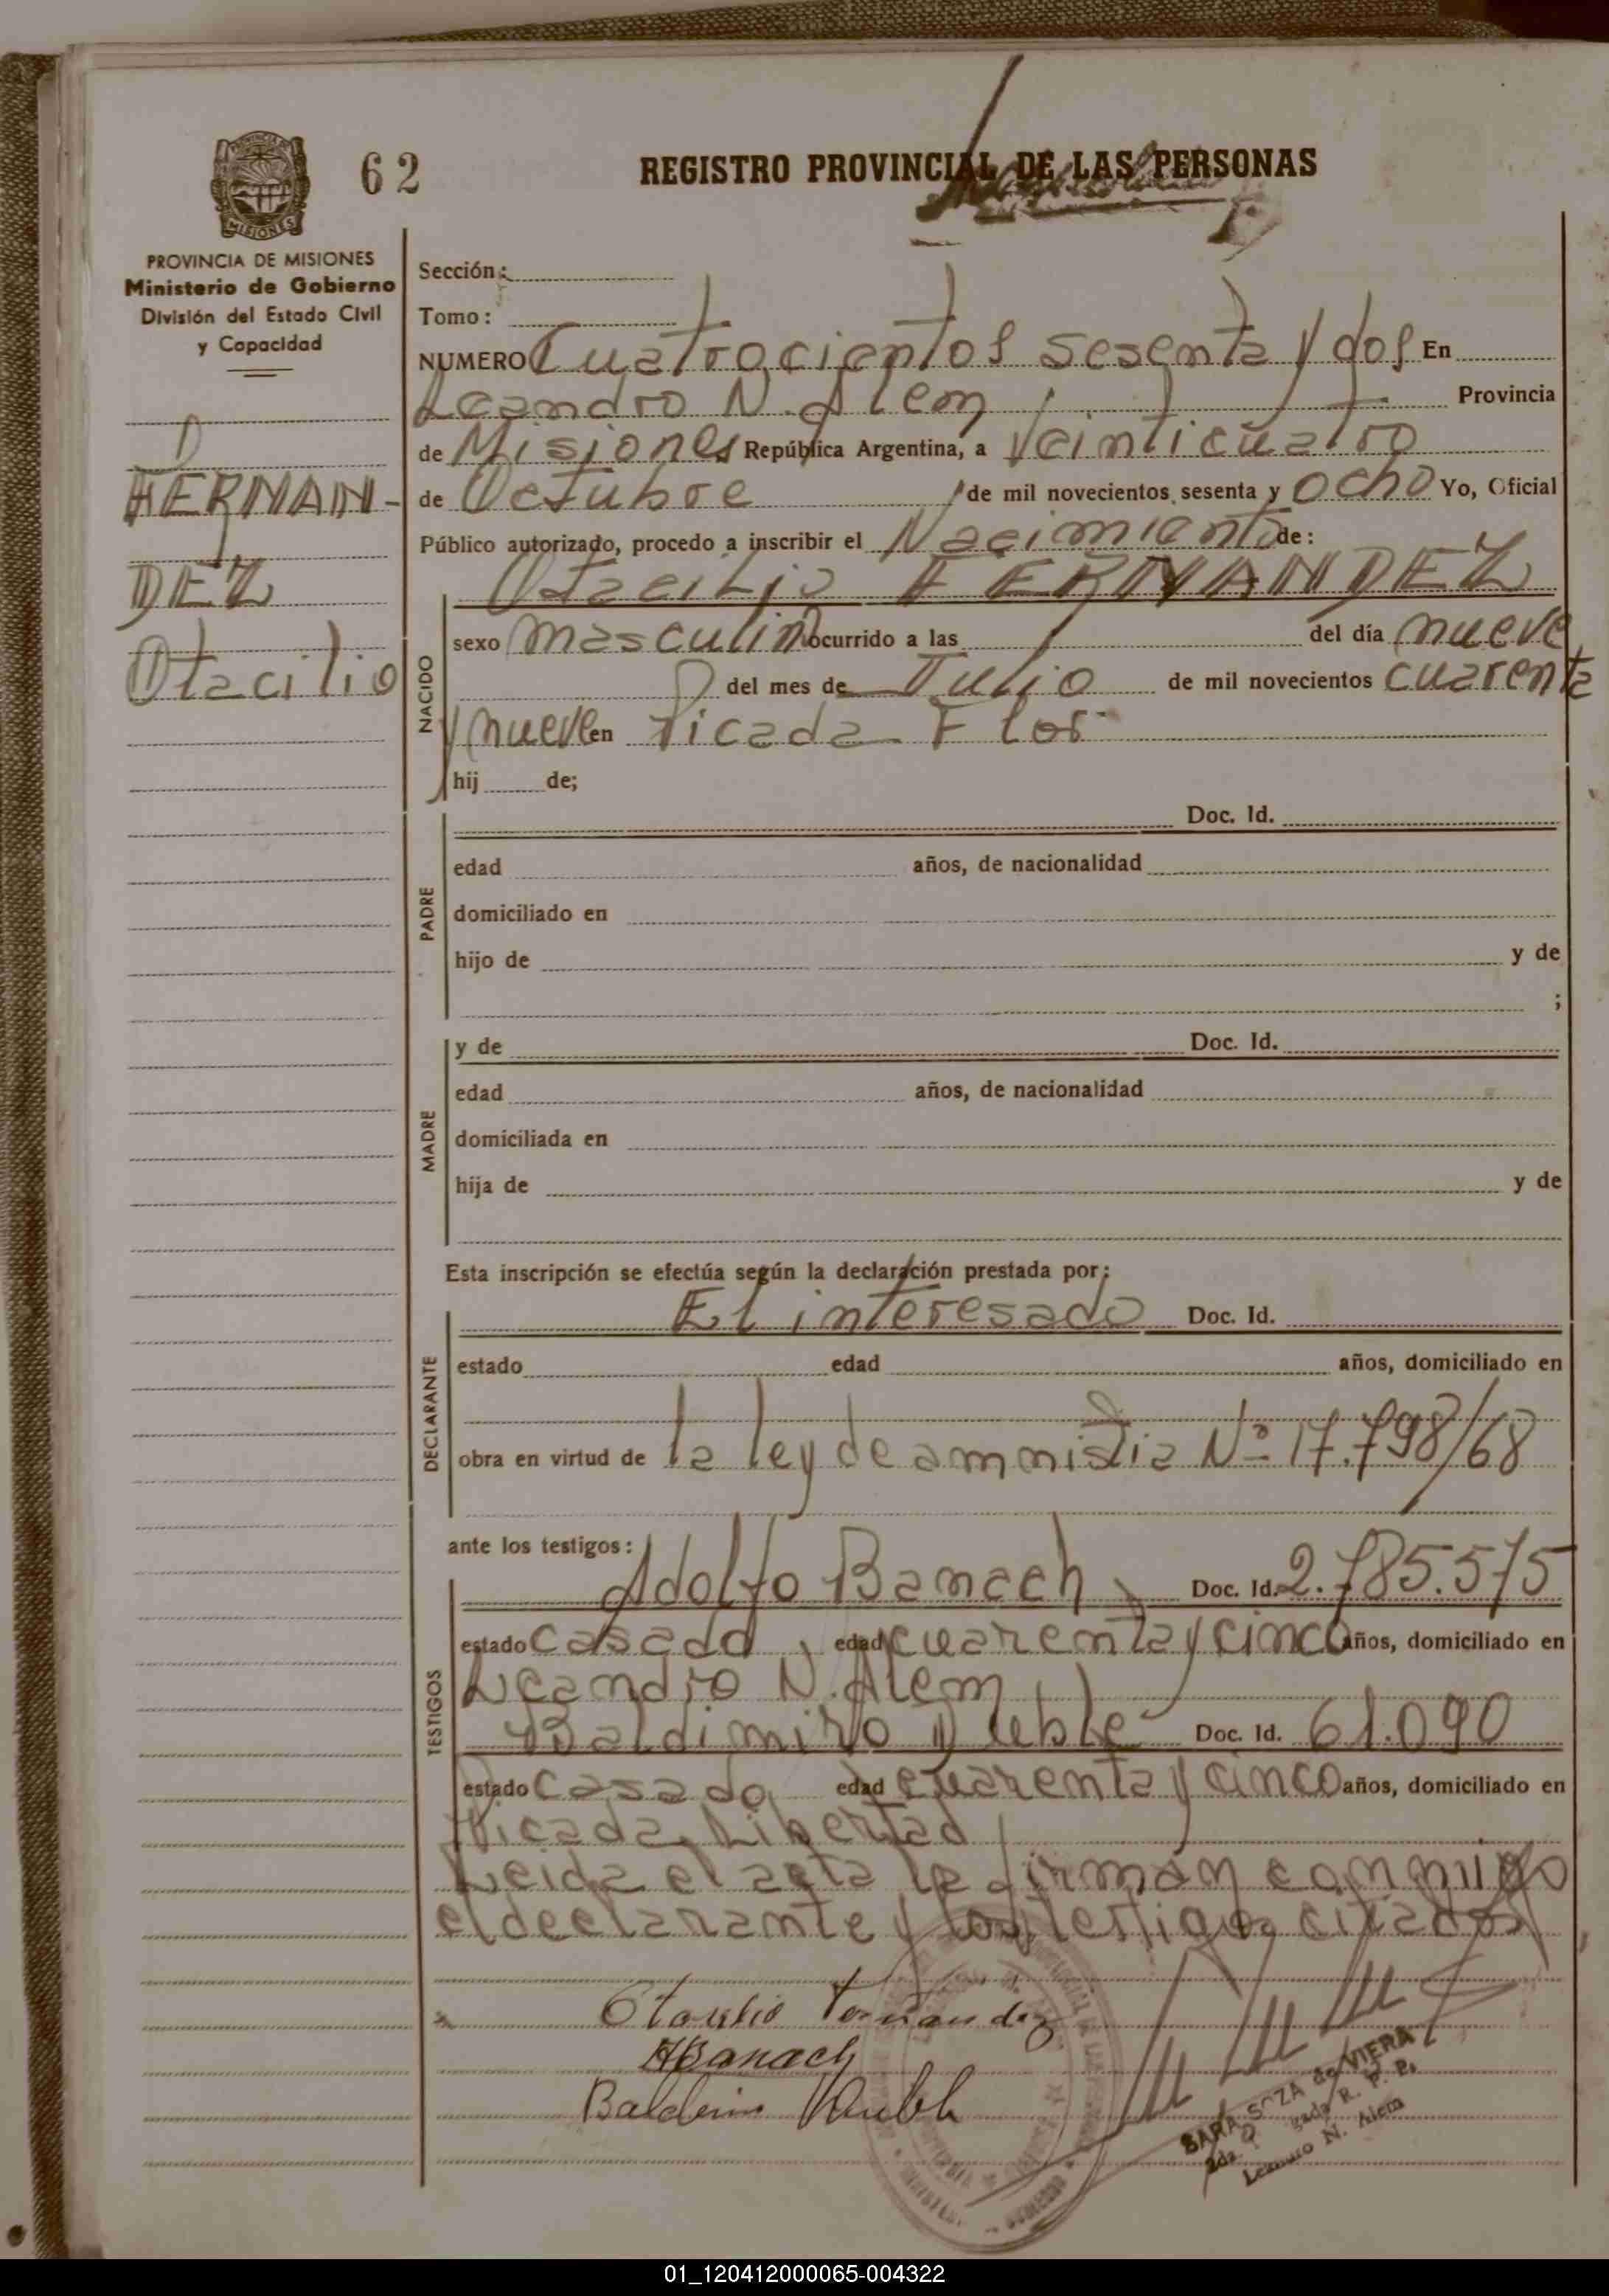 62
REGISTRO PROVINCIAL DE LAS PERSONAS
PROVINCIA DE MISIONES
Ministerio de Gobierno
División del Estado Civil
y Capacidad
HERNAN-
DEZ
Otacilio
Sección:
Tomo:
NUMERO Cuatrocientos sesenta y dos En
Leandro N. Alem, Provincia
de Misiones República Argentina, a Veinticuatro
de Octubre de mil novecientos sesenta y ocho Yo, Oficial
Público autorizado, procedo a inscribir el Nacimiento de:
Otacilio FERNANDEZ
NACIDO
sexo masculino ocurrido a las del día nueve
del mes de Julio de mil novecientos cuarenta
y nueve en Picada Flor
hij de;
PADRE
Doc. Id.
edad años, de nacionalidad
domiciliado en
hijo de y de
;
MADRE
y de Doc. Id.
edad años, de nacionalidad
domiciliada en
hija de y de
Esta inscripción se efectúa según la declaración prestada por:
DECLARANTE
El interesado Doc. Id.
estado edad años, domiciliado en
obra en virtud de la ley de amnistia Nº 17.798/68
ante los testigos:
TESTIGOS
Adolfo Banach, Doc. Id. 2.785.575
estado casado, edad cuarenta y cinco años, domiciliado en
Leandro N. Alem,
Baldimiro Duble Doc. Id. 61.090
estado Casado edad cuarenta y cinco años, domiciliado en
Picada Libertad
Leida el acta la firman conmigo
el declarante y los testigos citados
Otacilio Fernandez
ABanach
SARA SOZA de VIERA
Leandro N. Alem
01_120412000065-004322